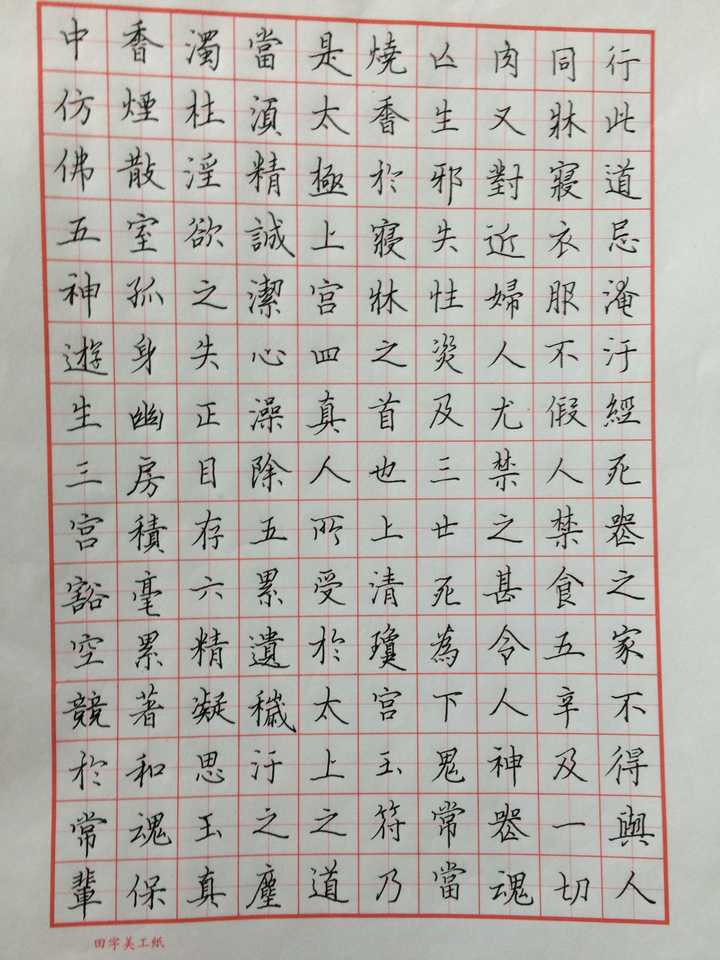 行此道忌淹汙經死器之家不得與人
同牀寢衣服不假人禁食五辛及一切
肉又對近婦人尤禁之甚令人神器魂
亡生邪失性災及三世死為下鬼常當
燒香於寢牀之首也上清瓊宮玉符乃
是太極上宮四真人所受於太上之道
當須精誠潔心澡除五累遺穢汙之塵
濁杜淫欲之失正目存六精凝思玉真
香煙散室孤身幽房積毫累著和魂保
中仿佛五神遊生三宮豁空競於常輩
田字美工紙